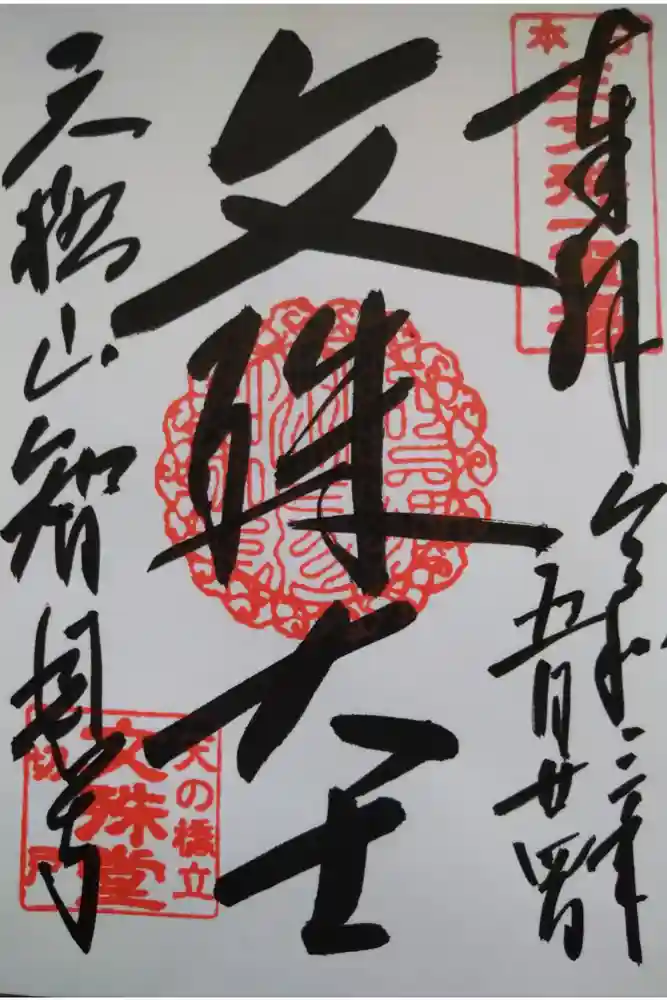 奉拝
令和三年
五月廿四日
文殊大士
天橋山智恩寺
天の橋立
文殊堂
切戸